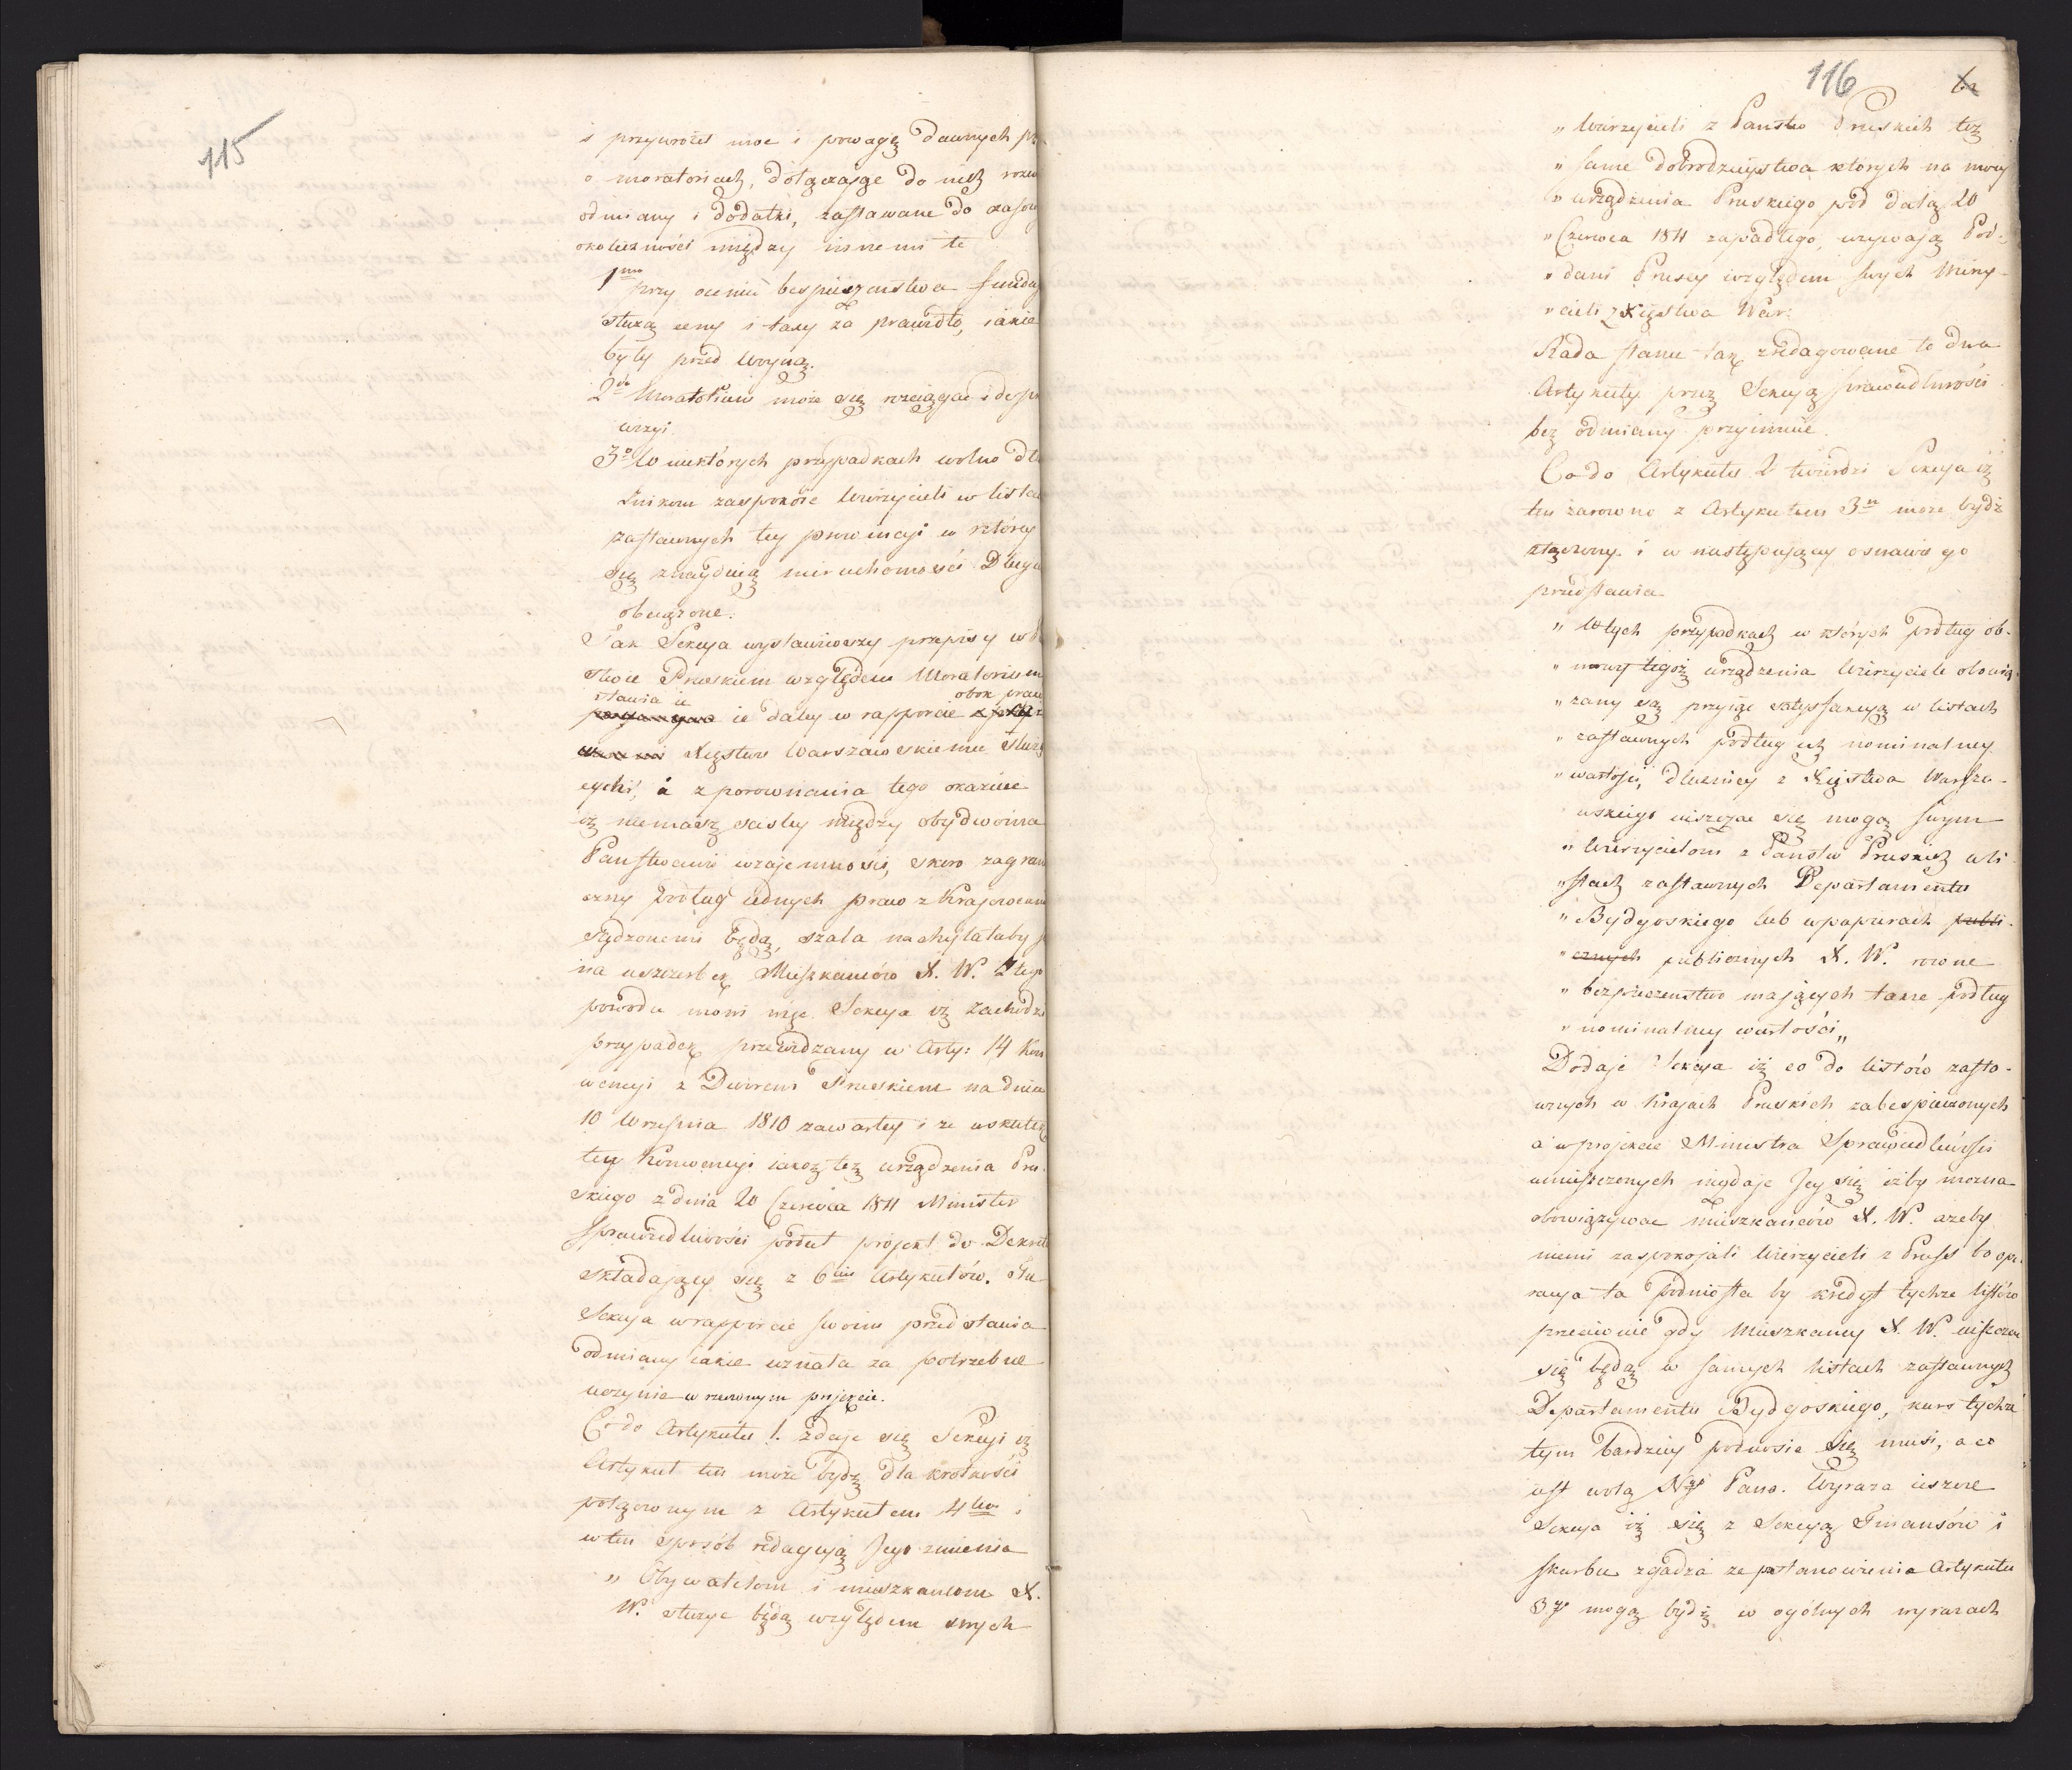 115
i przywrócił moc i powagę dawnych
o moratoriach, dołączając do nich
odmiany i dodatki, zastawane do
okoliczności między innemi te
1mo przy ocenie bespieczeństwa
służą ceny i taxy za prawidło, iakie
były przed Woyną.
2do Moratorium może się rozciągać i do
wizyi
3o W niektórych przypadkach wolno
żnikom zaspokoić Wierzycieli w
zastawnych tey prowincyi w którey
się znayduią nieruchomości
obciążone.
Tak Sekcya wystawiwszy przepisy w
stwie Pruskiem względem Moratorium
stawia ie obok praw
ie daley w rapporcie
Xięstwu Warszawskiemu
cych, a z porownania tego okazuie
iż niemasz scisley między obydwoma
Panstwami wzajemnosci, skoro
czny podług iednych praw z
sądzonemi będą, szala nachylałaby
na uszczerbek Mieszkańców X. W. Z tego
powodu mówi więc Sekcya iż zachodzi
przypadek przewidzany w Arty: 14
wencyi z Dworem Pruskiem na dniu
10 Września 1810 zawartey i że w
tey Konwencyi iakoż też urządzenia Pru-
skiego z dnia 20 Czerwca 1811 Minister
Sprawiedliwości podał projekt do
składający się z 6ciu Artykułów. Tu
Sekcya w rapporcie swoim przedstawia
odmiany iakie uznała za potrzebne
uczynić w rzeczonym projekcie.
Co do Artykułu 1. zdaje się Sekcyi iż
Artykuł ten może bydź dla krotkości
połączonym z Artykułem 4tem i
w ten sposób redagują Jego zmienia
„ Obywatelom i mieszkańcom X.
W. służyć będą względem swych
116
„ Wierzycieli z Państw Pruskich też
„ same dobrodzieystwa których na mocy
„ urządzenia Pruskiego pod datą 20
„ Czerwca 1811 zapadłego, używają Pod-
„ dani Pruscy względem swych Wierzy-
„ cieli z Xięstwa War:
Rada stanu tak zredagowane te dwa
Artykuły przez Sekcyą sprawiedliwości
bez odmiany przyjmuie.
Co do Artykułu 2 twierdzi Sekcya iż
ten zarowno z Artykułem 3m może bydź
złączony i w następujący osnawie go
przedstawia
„ W tych przypadkach w których podług ob-
„ mowy tegoż urządzenia Wierzyciele obowią-
„ zany są przyiąć satysfakcyą w listach
„ zastawnych podług ich nominalney
„ wartości, dłużnicy z Xięstwa Warsza-
wskiego uiszczać się mogą swym
„ Wierzycielom z Państw Pruskich w li
„ stach zastawnych Departamentu
„ Bydgoskiego lub w papierach publi-
„ cznych publicznych X. W. rowne
„ bezpieczenstwo mających także podług
„ nominalney wartości „
Dodaje Sekcya iż co do listów zasta-
wnych w Krajach Pruskich zabespieczonych
a w projekcie Ministra Sprawiedliwości
umieszczonych niezdaje Jey się iżby można
obowiązywać mieszkańców X. W. azeby
niemi zaspokojali Wierzycieli z Pruss bo ope-
racya ta podniosła by kredyt tychże listów
przeciwnie gdy Mieszkancy X. W. uiszczać
się będą w samych listach zastawnych
Departamentu Bydgoskiego, kurs tychże
tym bardziey podnosić się musi, a co
iest wolą Ngo Pana. Wyraża ieszcze
Sekcya iż się z Sekcyą Finansów i
skarbu zgadza ze postanowienia Artykułu
3go mogą bydź w ogólnych wyrazach